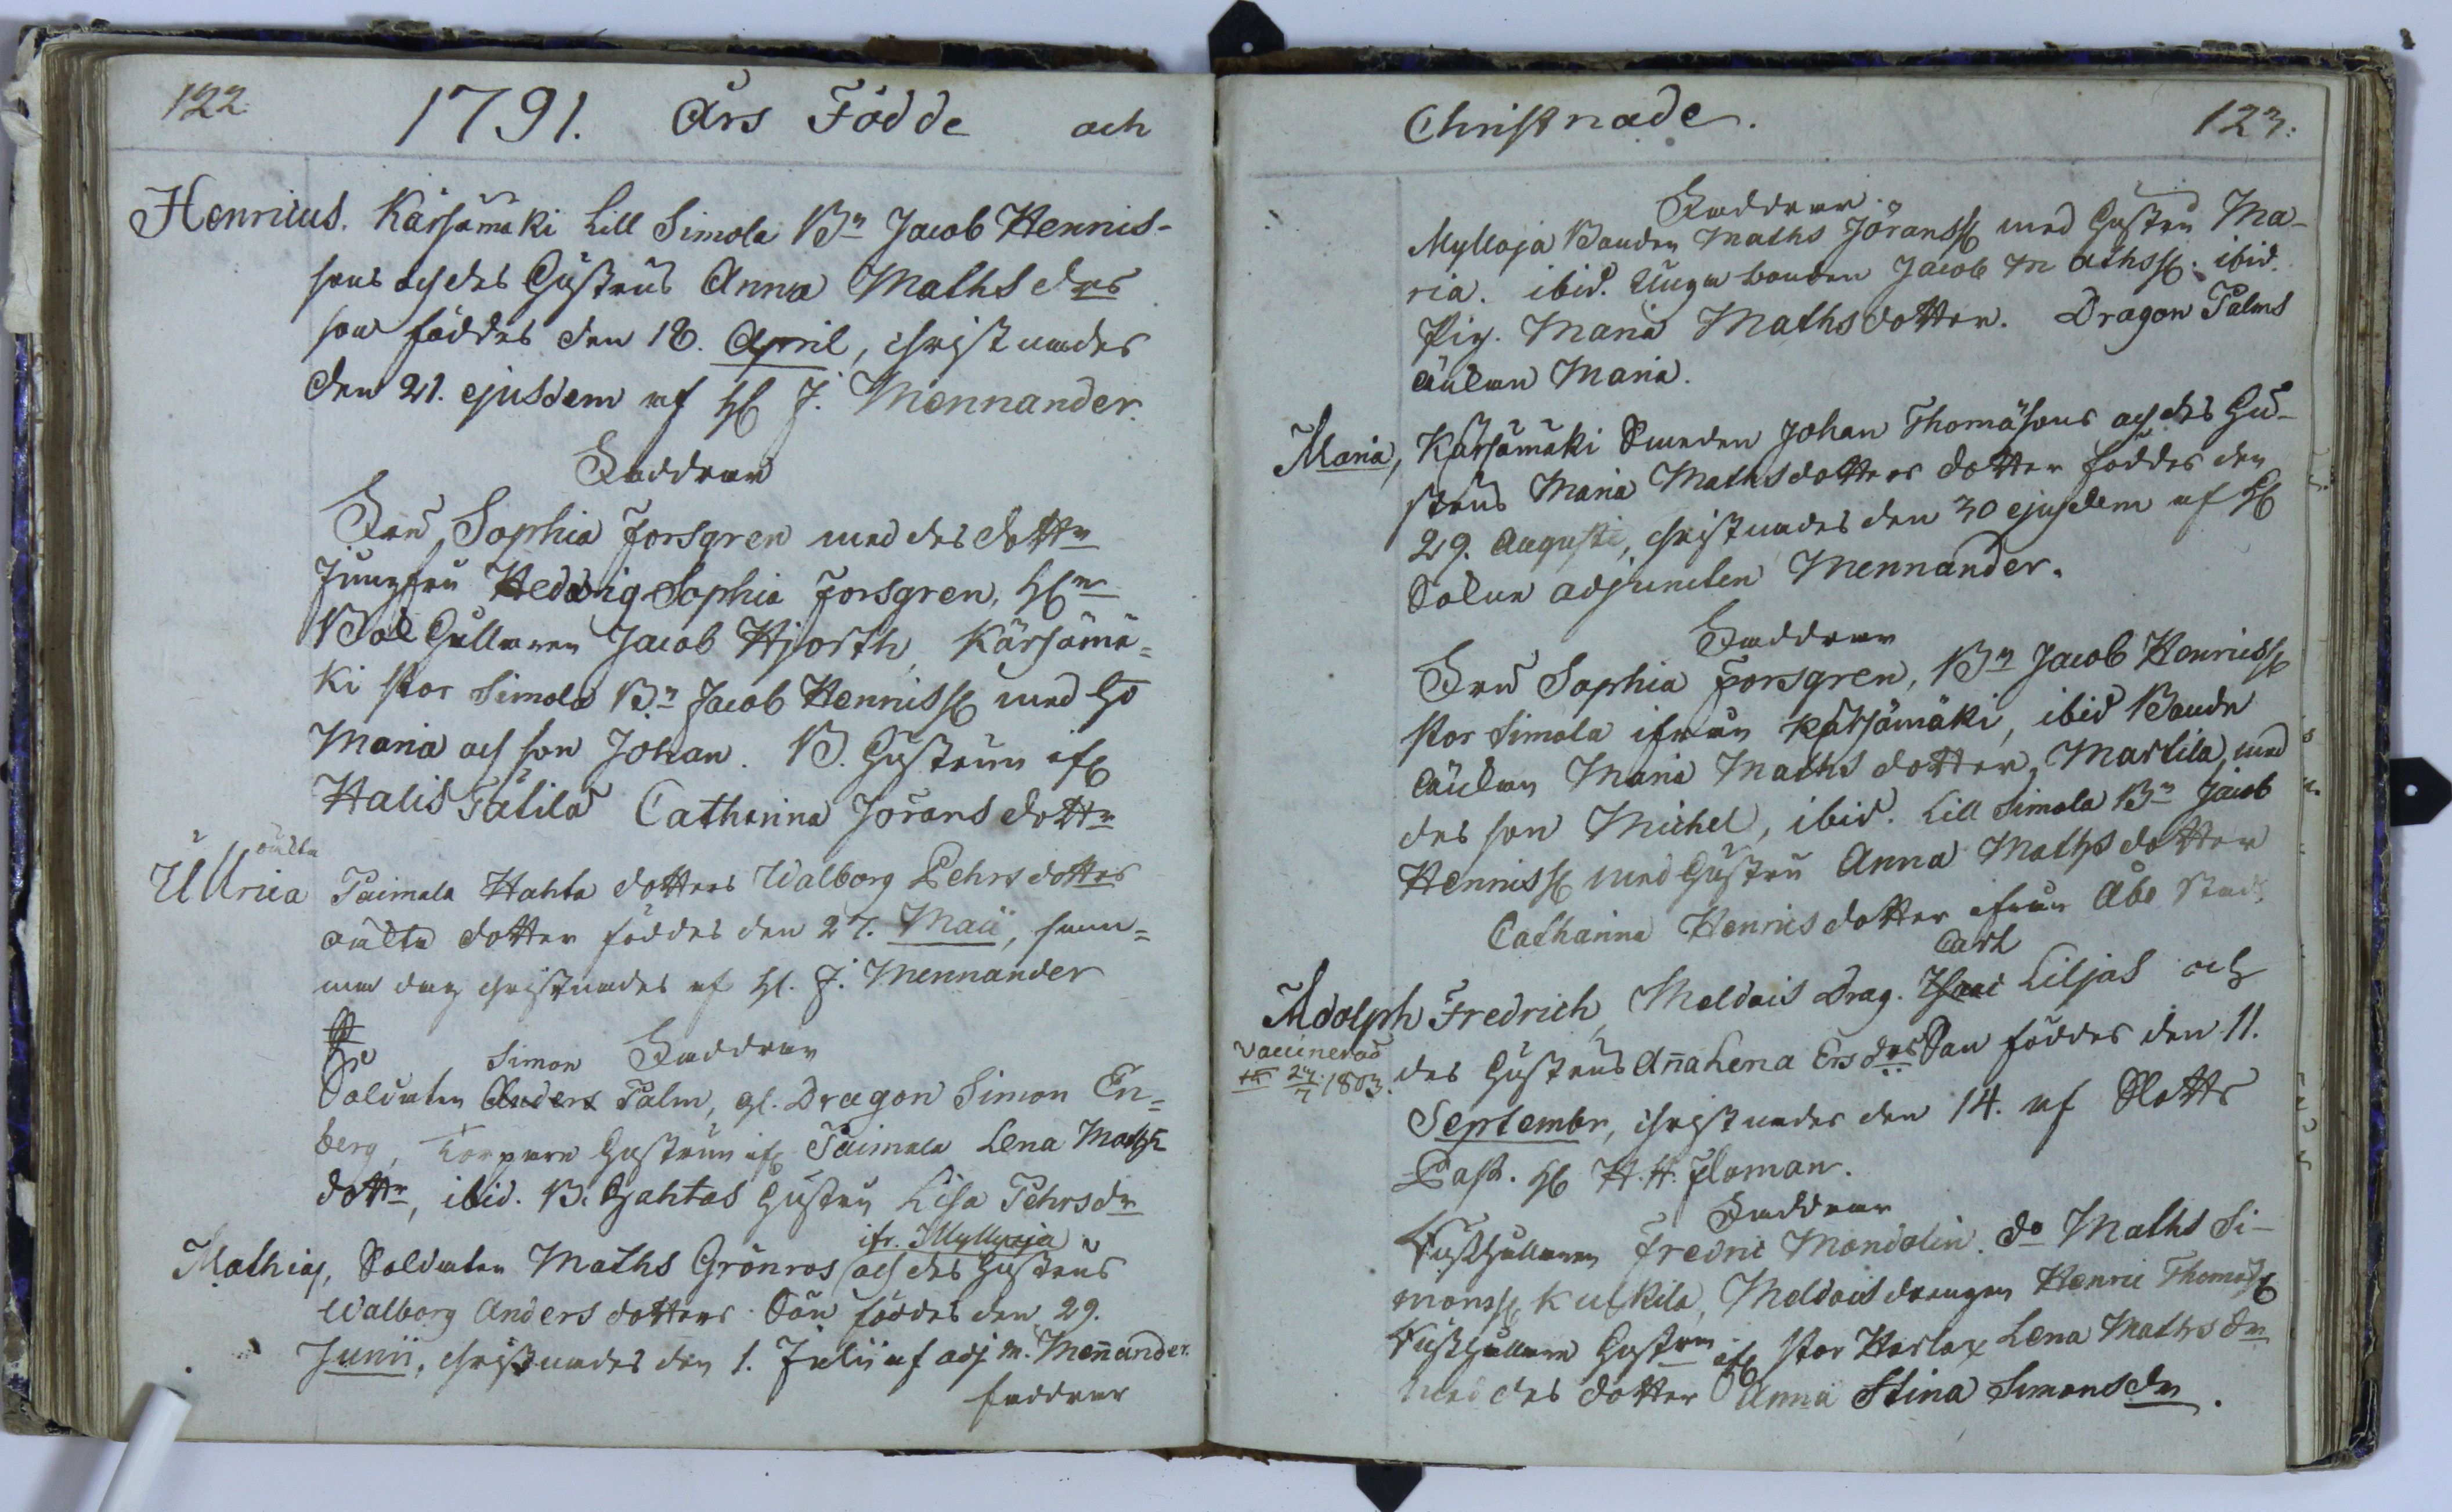 122.
1791. Års Födde och
Henricus. Kärsämäki Lill Simola Bn Jacob Henrics-
sons och des Hustrus Anna Mathsdrs
son föddes den 18. April, christnades
den 21. ejusdem af H J. Mennander.
Faddrar
Fru Sophia Forsgren med des dottr
Jungfru Hedvig Sophia Forsgren, Hrr
Jacob Hjorth, Kärsämä=
ki stor Simola Bn Jacob Henricss med Ho
Maria och son Johan. B. Hustrun ifr
Halis Tätilä Catharina Jörans dottr
oäkta
Ullrica Paimala Hahta dotters Walborg Pehrs dotters
oäkta dotter föddes den 27. Maii, sam=
ma dag christnades af H. J. Mennander
Simon Faddrar
Soldaten Anders Palm, gl. Dragon Simon En=
berg, Torpare Hustrun ifr Paimala Lena Maths
dottr, ibid. B. Hahtas Hustru Lisa Pehrsdr
ifr. Myllyoja
Mathias, Soldaten Maths Grönros och des Hustrus
Walborg Anders dotters Son föddes den 29.
Junii, christnades den 1. Julii af adj. m. Menander.
faddrar
Christnade. 123.
Faddrar.
Mylloja Bonden Maths Jöranss med Hustru Ma-
ria. ibid. Unga bonden Jacob Mathss. ibid.
Pig. Maria Mathsdotter. Dragon Palms
änkan Maria.
Maria, Kärsämäki Smeden Johan Thomäsons och des Hu-
strus Maria Mathsdotters dotter föddes den
29. Augusti, christnades den 30 ejusdem af H
adjuncten Mennander.
Faddrar
Fru Sophia Forsgren, Bn Jacob Henricss
stor Simola ifrån Kärsämäki, ibid Bonde
änkan Maria Maths dotter, Martila, med
des son Michel, ibid. Lill Simola Bn Jacob
Henricss med Hustru Anna Maths dotter
Catharina Henrics dotter ifrån Åbo Stad.
Carl
Adolph Fredrich, Moldais Drag. Liljas och
vaccinerad
24/7 1803.
des Hustrus Anna Lena Ersdrs Son föddes den 11.
Septembr, christnades den 14. af Slotts
Past. H H. H. Floman.
Faddrar
Fredric Mandolin. do Maths Si-
monss Kulkila, Moldais drengen Henric Thomass
Hustru ifr stor Heslax Lena Maths dr
med des dotter Anna Stina Simonsdr.